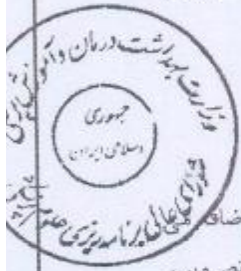 وزارت بهداشت درمان و آموزش پزشکی
جمهوری
اسلامی ایران
شورای عالی برنامه‌ریزی علوم پزشکی